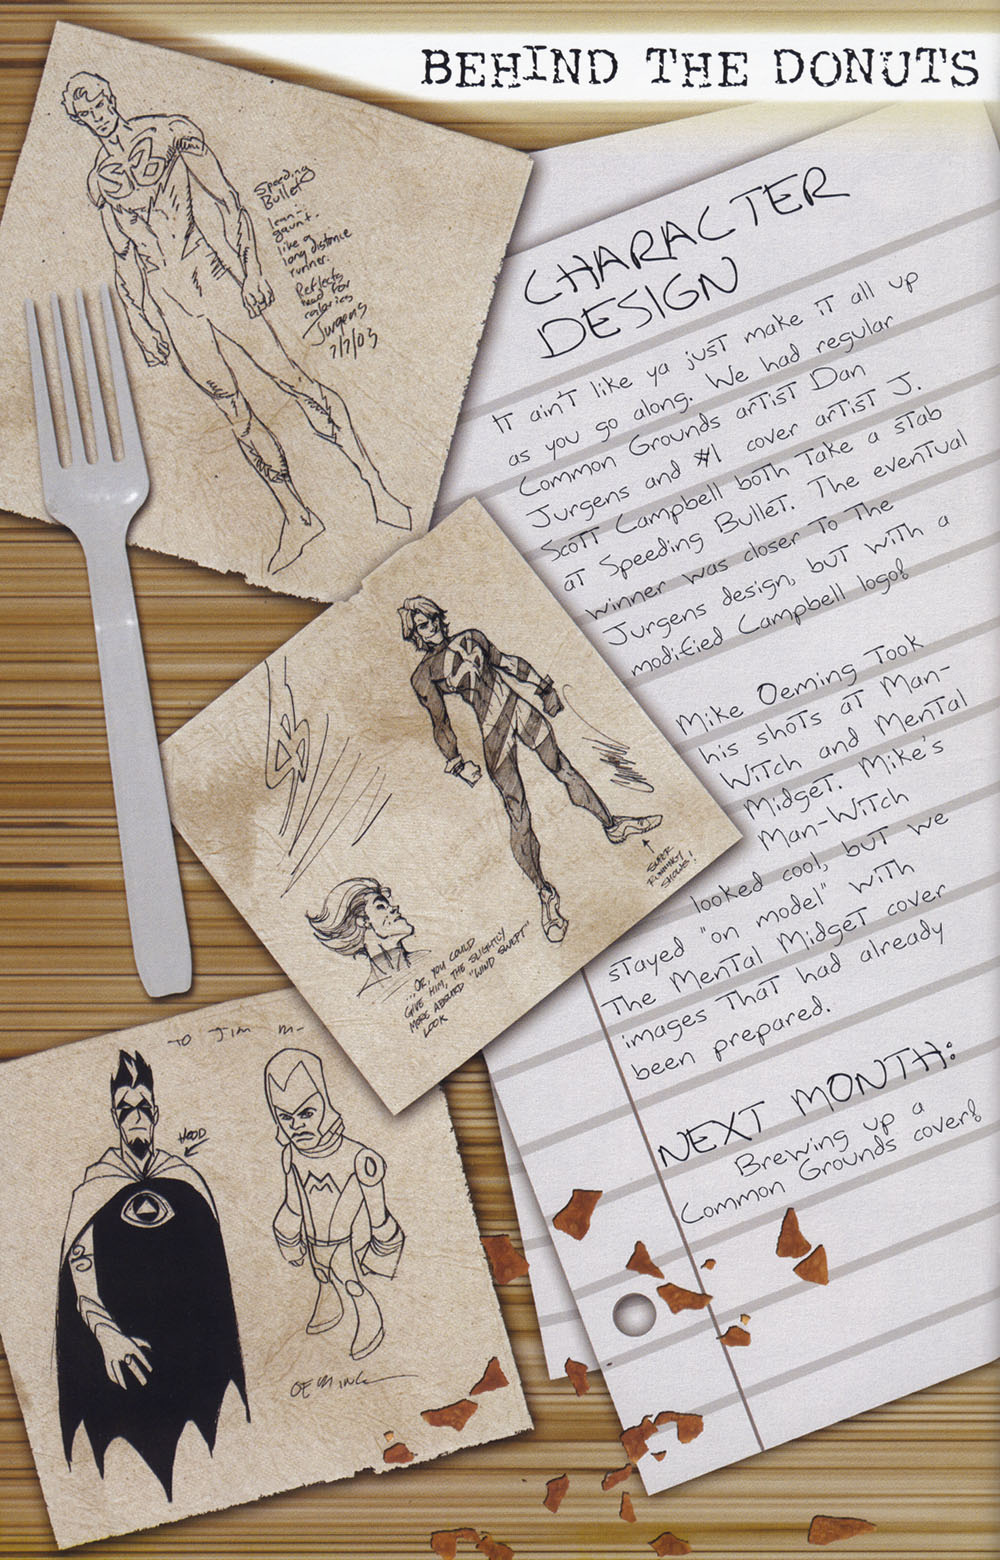 BEHIND THE DONUTS
Speeding
Bullet
Lean-
gaunt.
like a
long distance
runner.
Reflects
need for
calories
Jurgens
7/7/03
CHARACTER
DESIGN
It ain't like ya just make it all up
as you go along. We had regular
Common Grounds artist Dan
Jurgens and #1 cover artist J.
Scott Campbell both take a stab
at Speeding Bullet. The eventual
winner was closer to the
Jurgens design, but with a
modified Campbell logo!
Mike Oeming took
his shots at Man-
Witch and Mental
Midget. Mike's
Man-Witch
looked cool, but we
stayed "on model" with
the Mental Midget cover
images that had already
been prepared.
NEXT MONTH:
Brewing up a
Common Grounds cover!
SB
SUPER
RUNNING
SHOES!
...OR, YOU COULD
GIVE HIM, THE SLIGHTLY
MORE ABSURD "WIND SWEPT"
LOOK
TO Jim M-
HOOD
OEMING